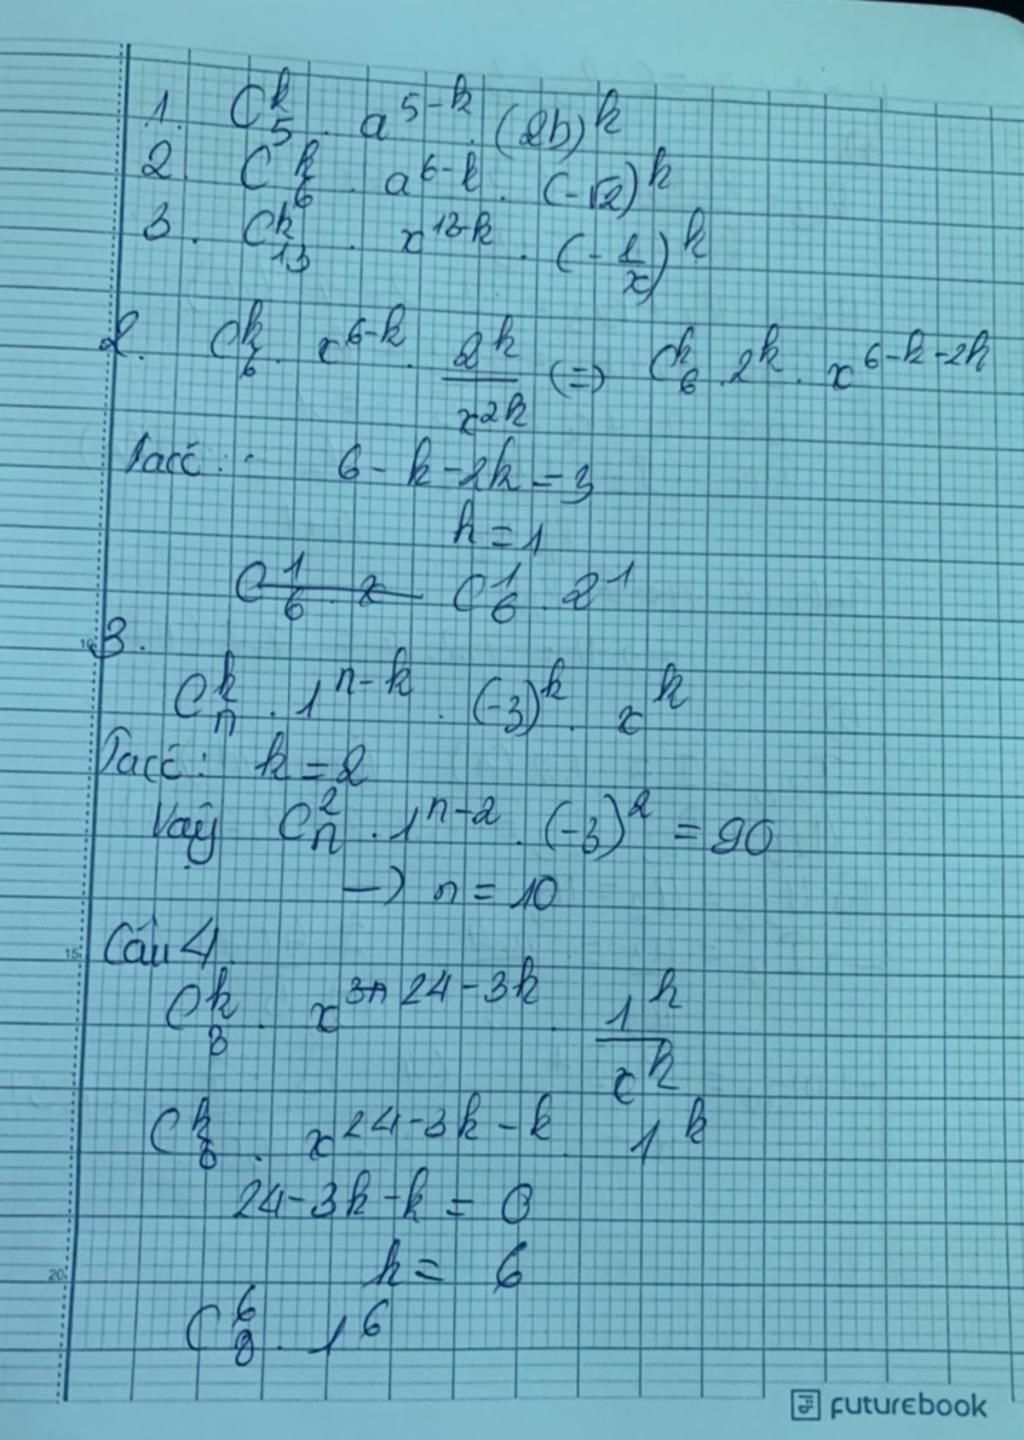 1. C_5^k . a^{5-k} . (2b)^k
2. C_6^k . a^{6-k} . (-√2)^k
3. C_13^k . x^{13-k} . (-1/x)^k
2. C_6^k . x^{6-k} . 2^k/x^{2k} (=) C_6^k . 2^k . x^{6-k-2k}
Tacc: 6-k-2k=3
k=1
C_6^1 . 2^1
3.
C_n^k . 1^{n-k} . (-3)^k . x^k
Tacc: k=2
Vậy C_n^2 . 1^{n-2} . (-3)^2 = 90
→ n=10
Câu 4
C_8^k . x^{24-3k} . 1^k/x^k
C_8^k . x^{24-3k-k} 1^k
24-3k-k = 0
k = 6
C_8^6 . 1^6
15
20
futurebook